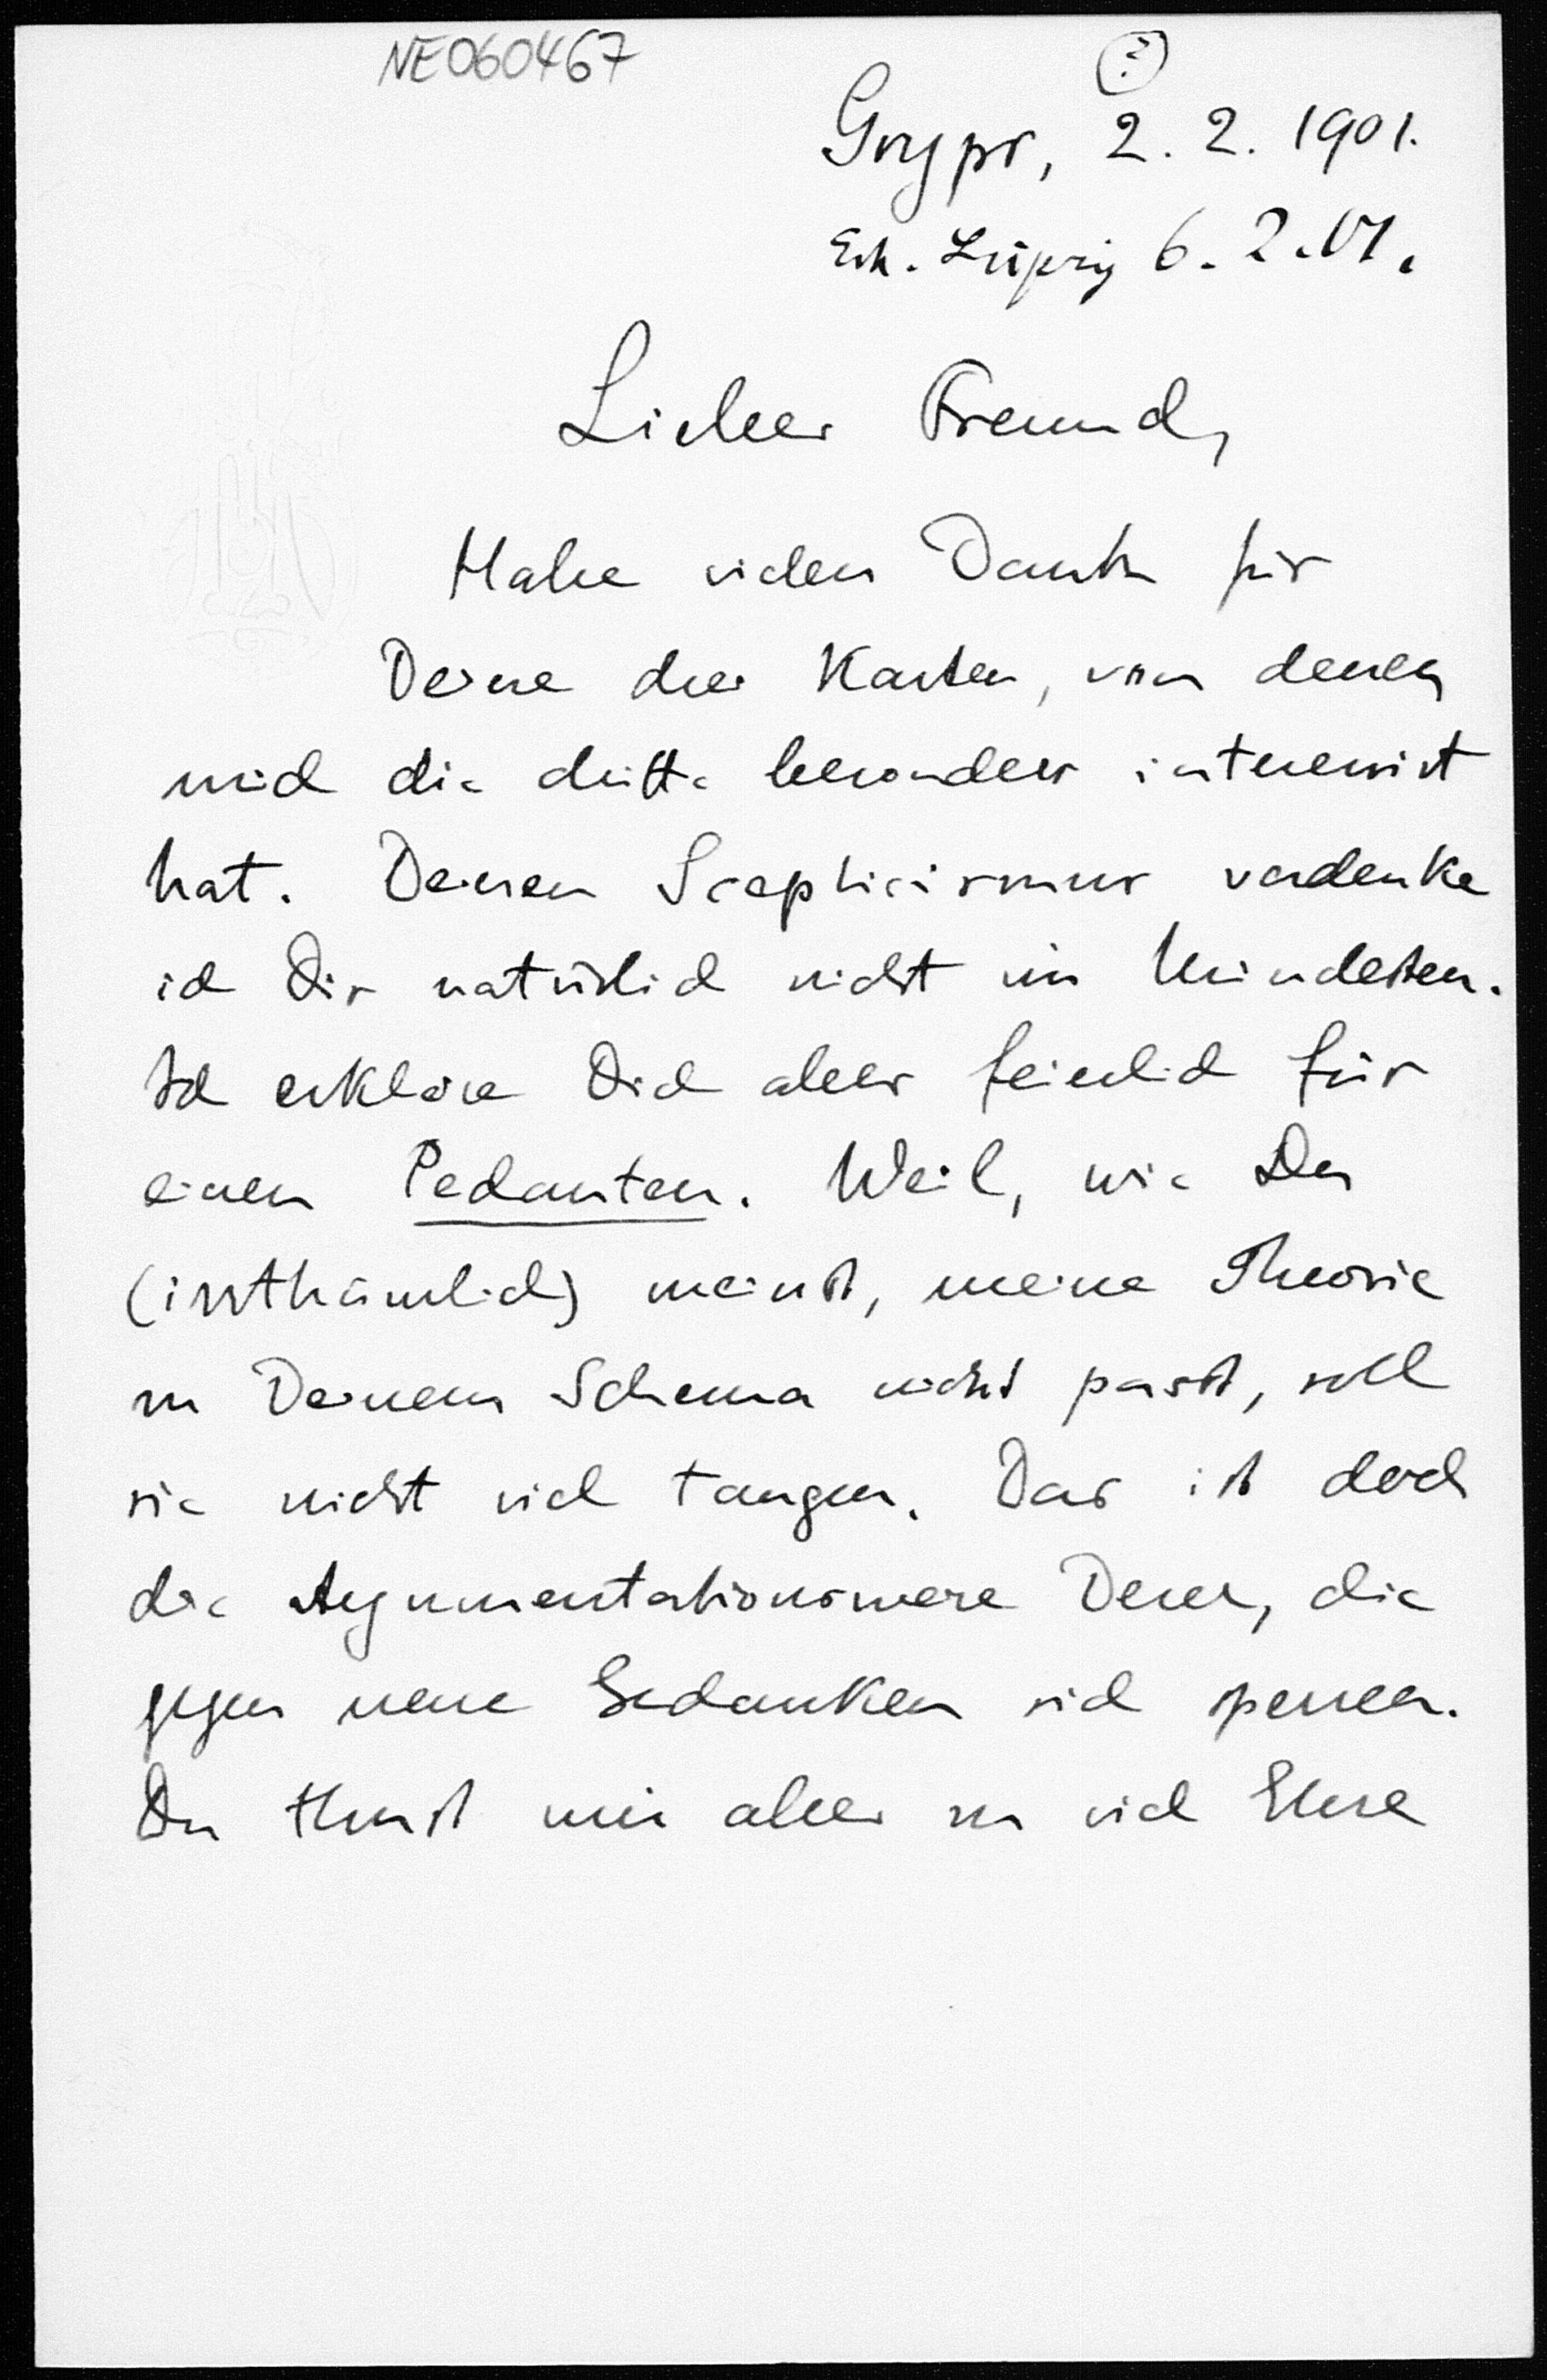 NE060467
(?)
Gryps, 2. 2. 1901.
Erh. Leipzig 6. 2. 01.
Lieber Freund,
Habe vielen Dank für
Deine drei Karten, von denen
mich die dritte besonders interessirt
hat. Deinen Scepticismus verdenke
ich Dir natürlich nicht im Mindesten.
Ich erkläre Dich aber feierlich für
einen Pedanten. Weil, wie Du
(irrthümlich) meinst, meine Theorie
zu Deinem Schema nicht passt, soll
sie nicht viel taugen. Das ist doch
die Argumentationsweise Derer, die
gegen neue Gedanken sich sperren.
Du thust mir aber zu viel Ehre